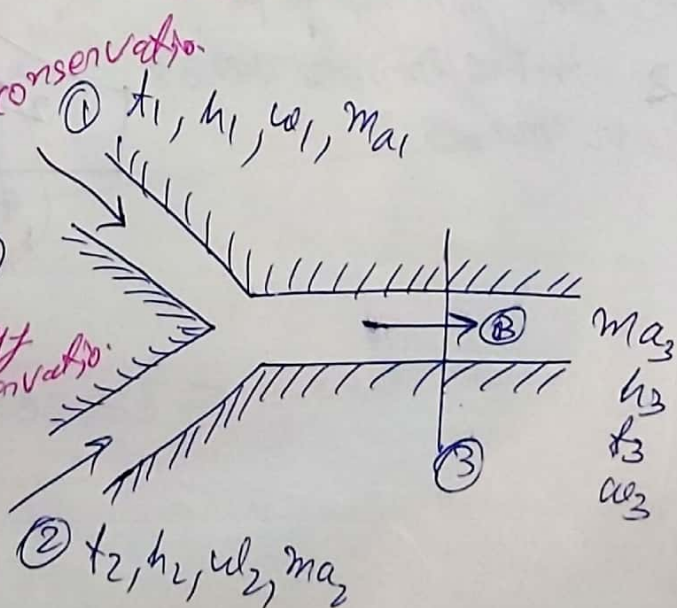 conservatio.
① t1, h1, ω1, ma1
ma3
h3
t3
ω3
③
② t2, h2, ω2, ma2